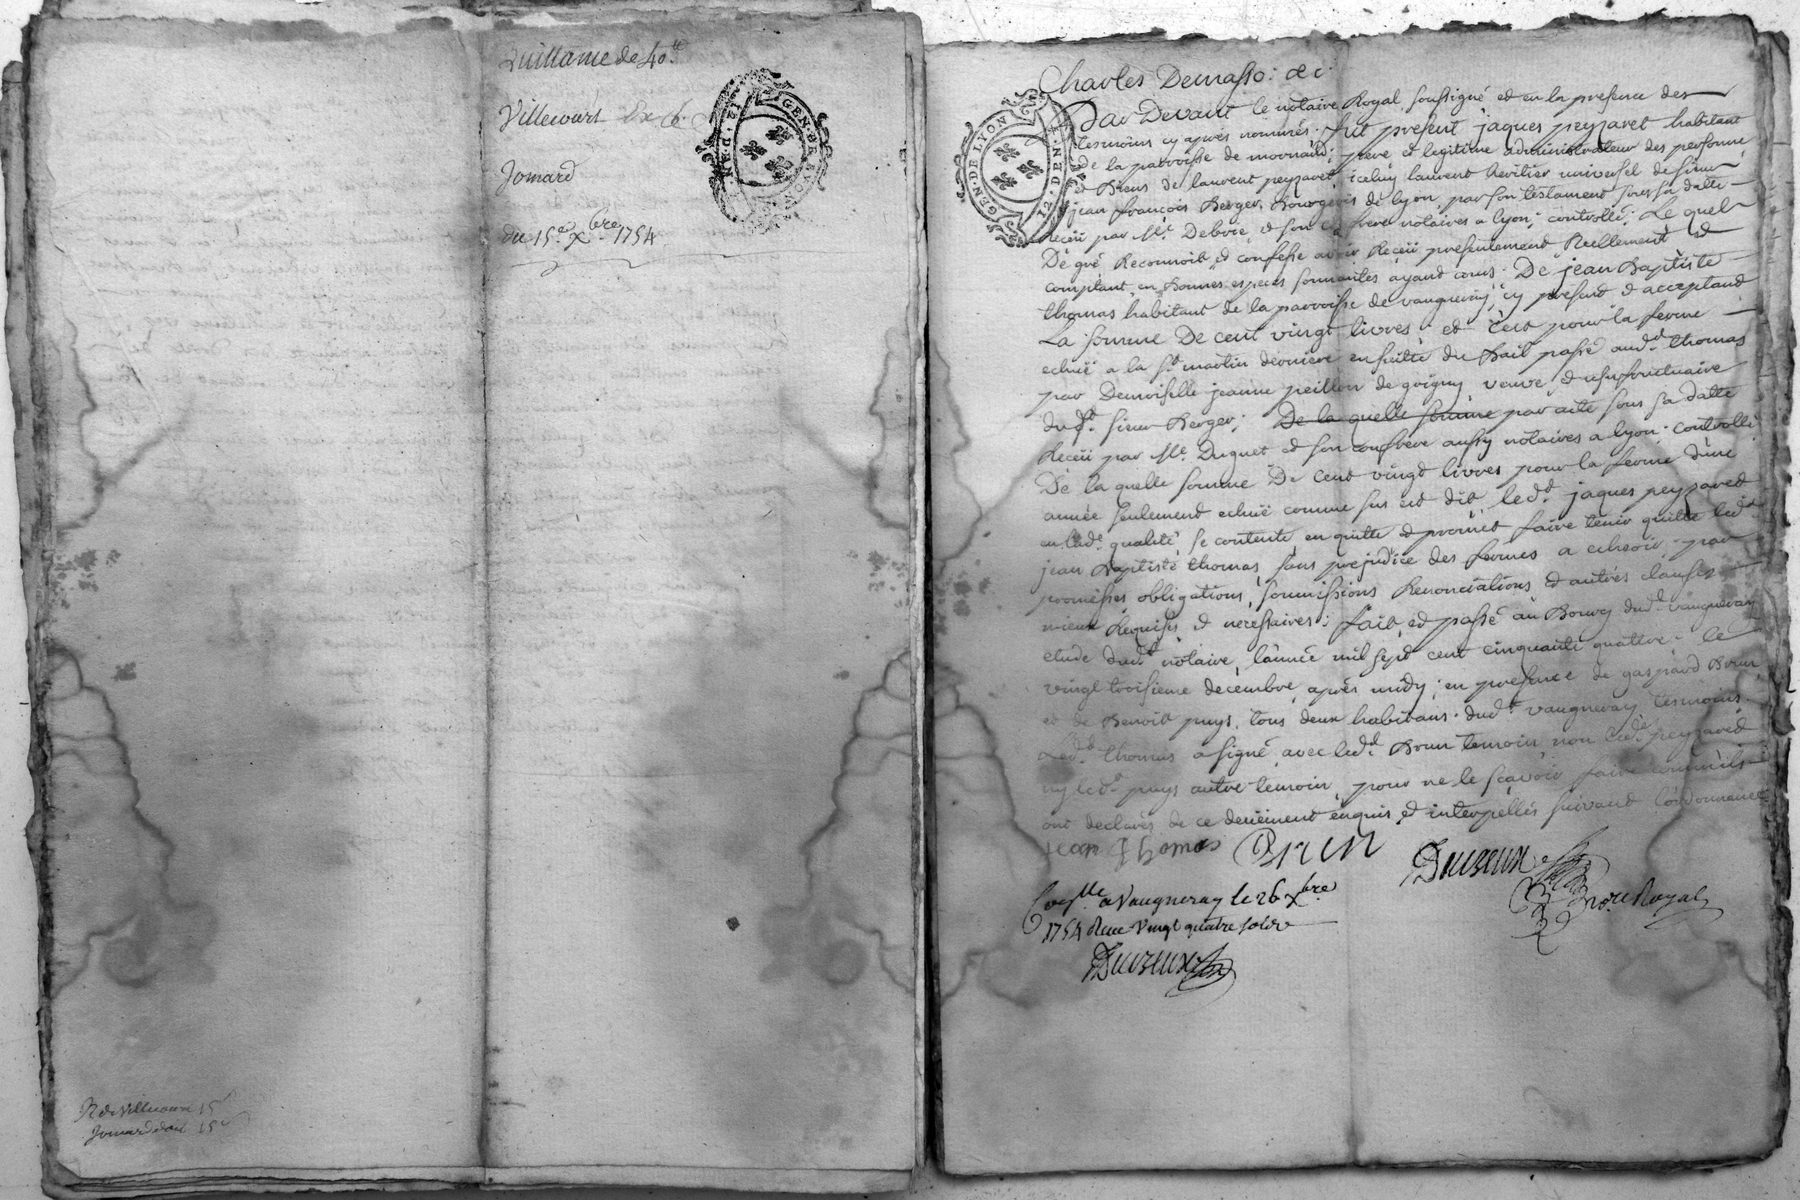 Quittance de 40.tt
Villecourt Ex C
Jomard
du 15.e xbre 1754
GEN. DE LYON
R de Villecourt 15
Jomard 15
Charles Demasso
GEN. DE LYON 12. DEN
Par Devant le notaire Royal soussigné et en la presence des
tesmoins cy après nommés. fut present jaques peyzaret habitant
de la parroisse de mornand; pere et legitime administrateur des personne
et Biens de laurent peyzaret iceluy laurent heritier universel de sieur
jean françois Berger Bourgeois de lyon, par son testament sous sa datte
Receü par Me. Debrie, et son confrere notaires a lyon; controllé. Le quel
De gré Reconnoit et confesse avoir Receü presentement Reellement et
comptant en Bonnes especes sonnantes ayant cours. De jean Baptiste
thomas habitant de la parroisse de vaugneray, cy present et acceptant
La somme De cent vingt livres; et c'est pour la ferme
echuë a la st. martin derniere ensuitte du Bail passé aud.t thomas
par Demoiselle jeanne peillon de goigny veuve et usufructuaire
dud.t sieur Berger; De la quelle somme par acte sous sa datte
Receü par Me. Duguet et son confrere aussy notaires a lyon; controllé
De la quelle somme De cent vingt livres pour la ferme d'une
année seulement echuë comme sus est dit led.t jaques peyzaret
en lad.e qualité se contente, en quitte et promet faire tenir quitte led.t
jean Baptiste thomas, sans prejudice des fermes a echeoir; par
promesses obligations, soumissions Renonciations et autres clauses
mieux Requises et necessaires; fait et passé au Bourg dud.t vaugneray
etude dud.t notaire, l'année mil sept cent cinquante quattre le
vingt troisieme decembre après midy; en presence de gaspard Brun
et de Benoit puys, tous deux habitans dud.t vaugneray tesmoins
Led.t thomas a signé avec led.t Brun temoin, non led.t peyzaret
ny led.t puys autre temoin, pour ne le sçavoir faire comme ils
ont declarés de ce deüement enquis et interpellés suivant l'ordonnance
jean Thomas Brun
No.re Royal
Con.lle a Vaugneray le 26 xbre
1754 Receu vingt quatre sols